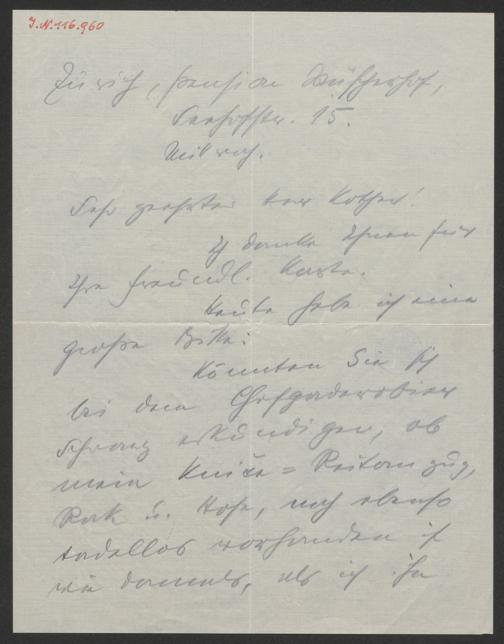 J.N. 116.960
Zürich, Pension
Seehofstr. 15.
Mittwoch.
Sehr geehrter Herr
Ich danke Ihnen für
Ihre freundl. Karte.
Heute habe ich eine
große Bitte:
Könnten Sie sich
bei dem Chefgarderobier
erkundigen, ob
mein Knize =
Rock u. Hose, noch ebenso
tadellos vorhanden ist
wie damals, als ich ihn